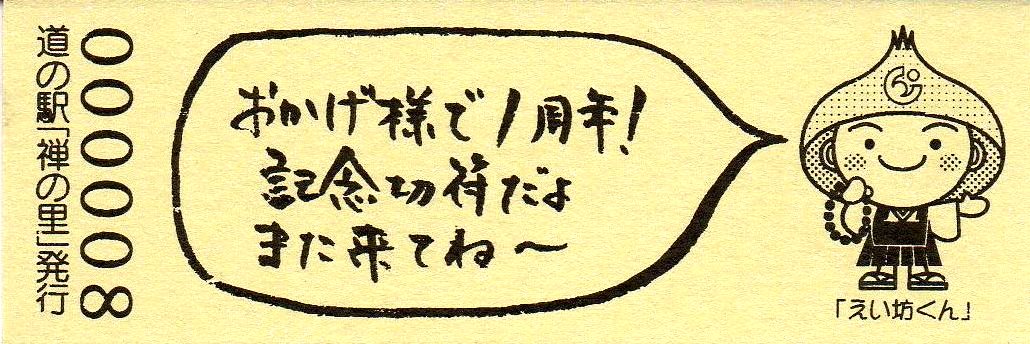 道の駅「禅の里」発行
000008
おかげ様で1周年!
記念切符だよ
また来てね〜
「えい坊くん」